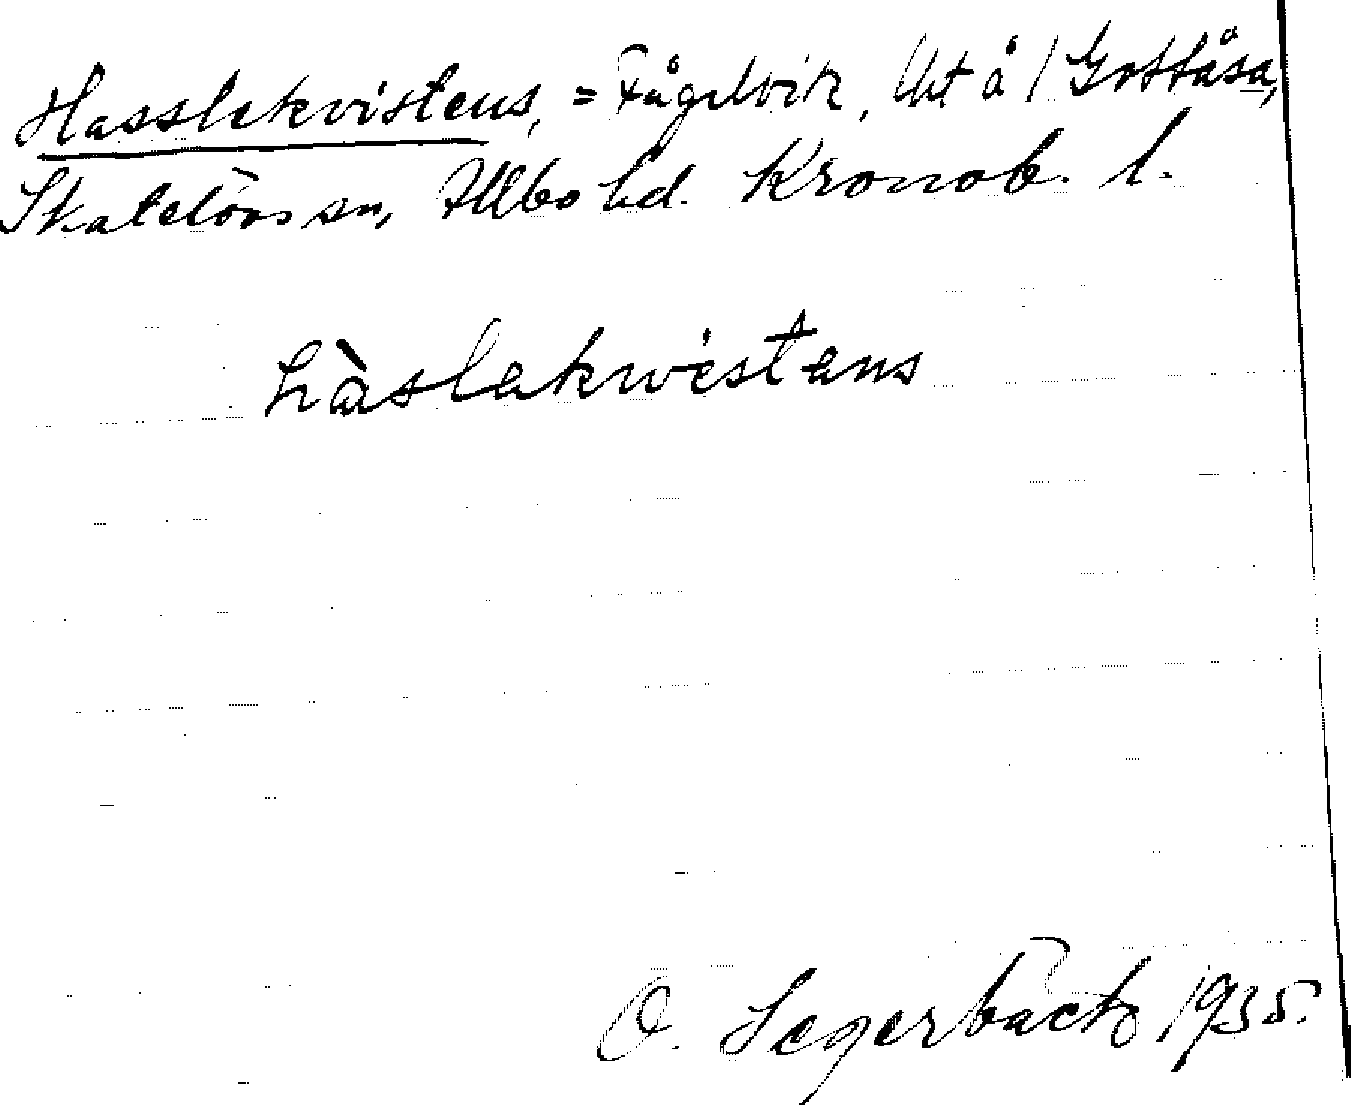 Hasslekvistens, = Fågelvik, Utt å / Gottåsa,
Skatelövs sn, Allbo hd. Kronob. l.
hàslakwistans
O. Segerbäck 1935.